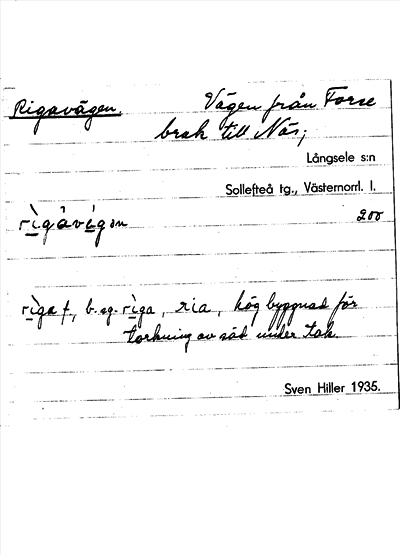 Rigavägen. Vägen från Forse
bruk till Näs;
Långsele s:n
Sollefteå tg., Västernorrl. l.
200
rìga f., b. sg. rìga, ria, hög byggnad för
torkning av säd under tak.
Sven Hiller 1935.